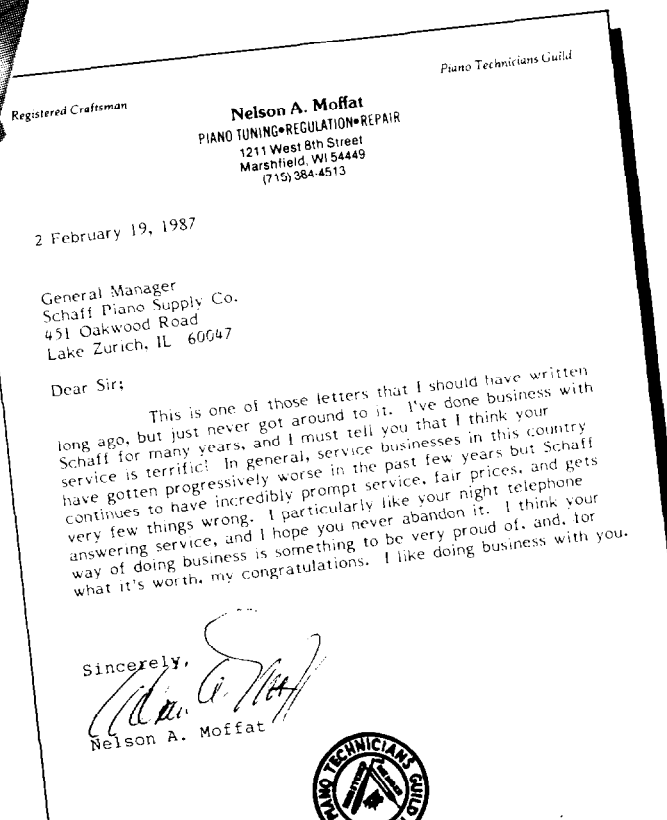 Piano Technicians Guild
Registered Craftsman
Nelson A. Moffat
PIANO TUNING•REGULATION•REPAIR
1211 West 8th Street
Marshfield, WI 54449
(715) 384-4513
2 February 19, 1987
General Manager
Schaff Piano Supply Co.
451 Oakwood Road
Lake Zurich, IL 60047
Dear Sir:
This is one of those letters that I should have written
long ago, but just never got around to it. I've done business with
Schaff for many years, and I must tell you that I think your
service is terrific! In general, service businesses in this country
have gotten progressively worse in the past few years but Schaff
continues to have incredibly prompt service, fair prices, and gets
very few things wrong. I particularly like your night telephone
answering service, and I hope you never abandon it. I think your
way of doing business is something to be very proud of, and, for
what it's worth, my congratulations. I like doing business with you.
Sincerely,
Nelson A. Moffat
PIANO TECHNICIANS GUILD